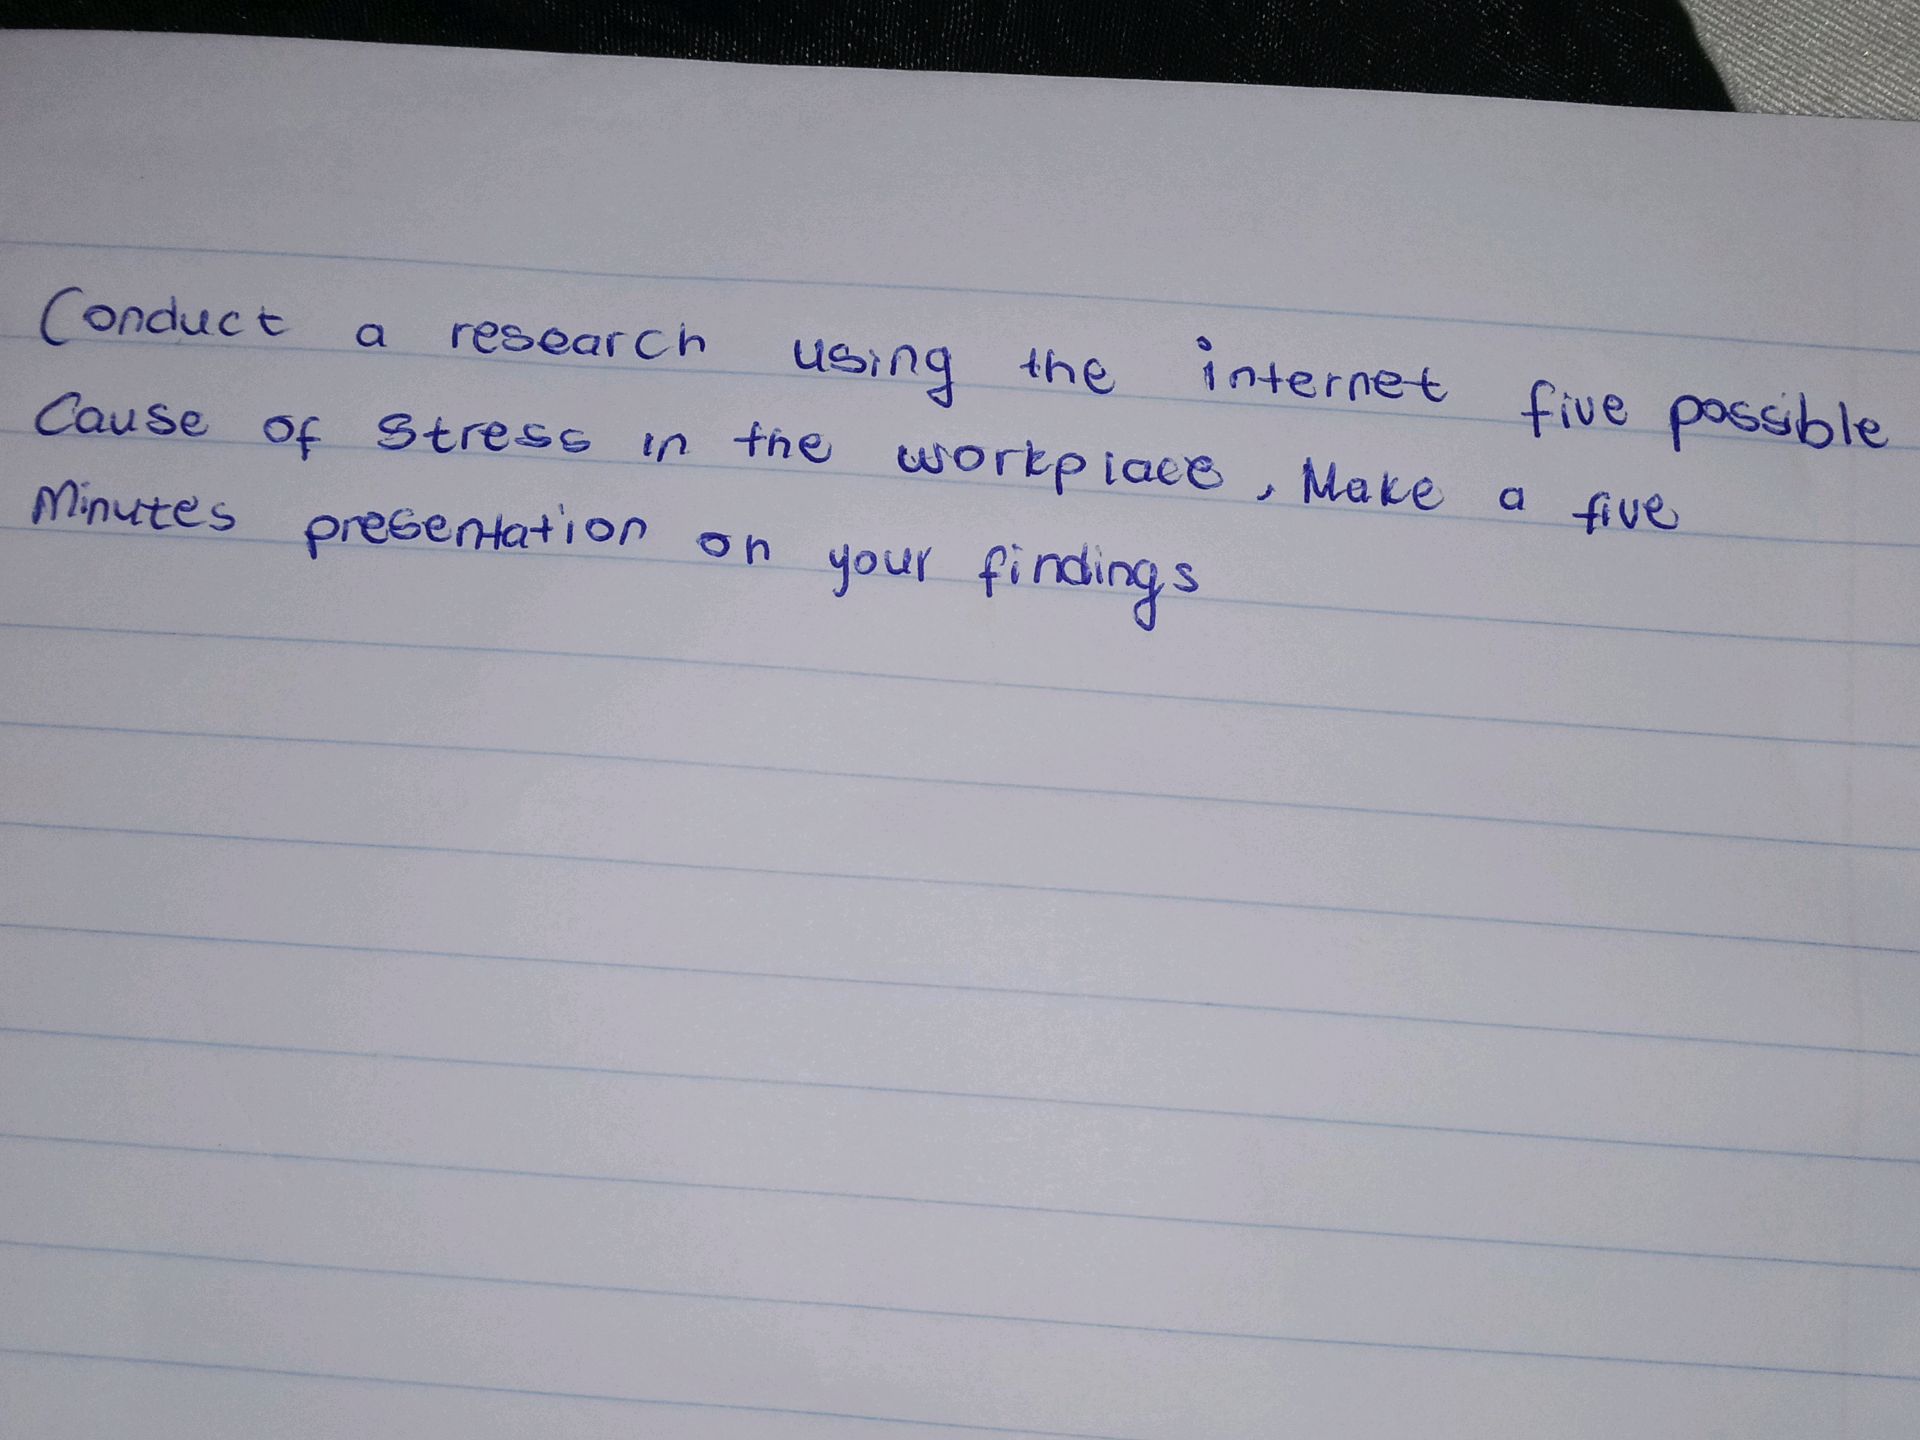 Conduct a research using the internet five possible
Cause of Stress in the workplace, Make a five
Minutes presentation on your findings